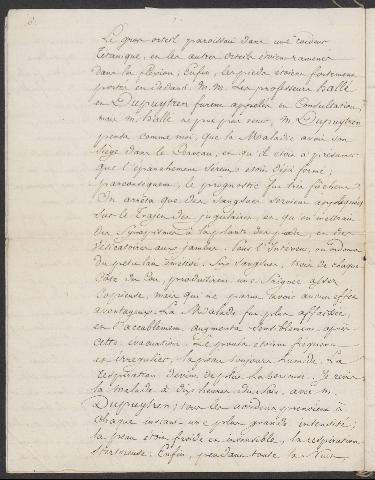 6.
Le gros orteil paroissoit dans une roideur
tétanique, et les autres orteils étoient ramenés
dans la flexion; Enfin, les pieds étoient fortement
portés en dedans. M.M. Les professeurs hallé
et Dupuytren furent appelés en Consultation,
mais M. hallé ne put pas venir, M. Dupuytren
pensa comme moi, que la Maladie avoit son
Siège dans le Cerveau, et qu'il étoit à présumer
que l'épanchement Séreux étoit déjà formé;
parconséquent, le prognostic fut très fâcheux.
On arrêta que des Sangsues seroient appliquées
sur le Trajet des jugulaires, et qu'on mettrait
des Synapismes à la plante des pieds, et des
Vésicatoires aux jambes. à l'Intérieur, on donna
du petit lait émétisé. Six Sangsues, trois de chaque
Côté du Cou, produisirent une Saignée assez
Copieuse, mais qui ne parut avoir aucun effet
avantageux. La Malade fut plus affaissée,
et l'accablement augmenta Sensiblement après
cette évacuation. Le pouls étoient fréquent
et irrégulier, la peau toujours humide. La
respiration devint de plus laborieuse. Je revis
la Malade à dix heures du Soir, avec M.
Dupuytren; tous les accidens prenoient à
chaque instant une plus grande intensité;
la peau étoit froide et insensible, la respiration
Stertoreuse; Enfin, pendant toute la Nuit